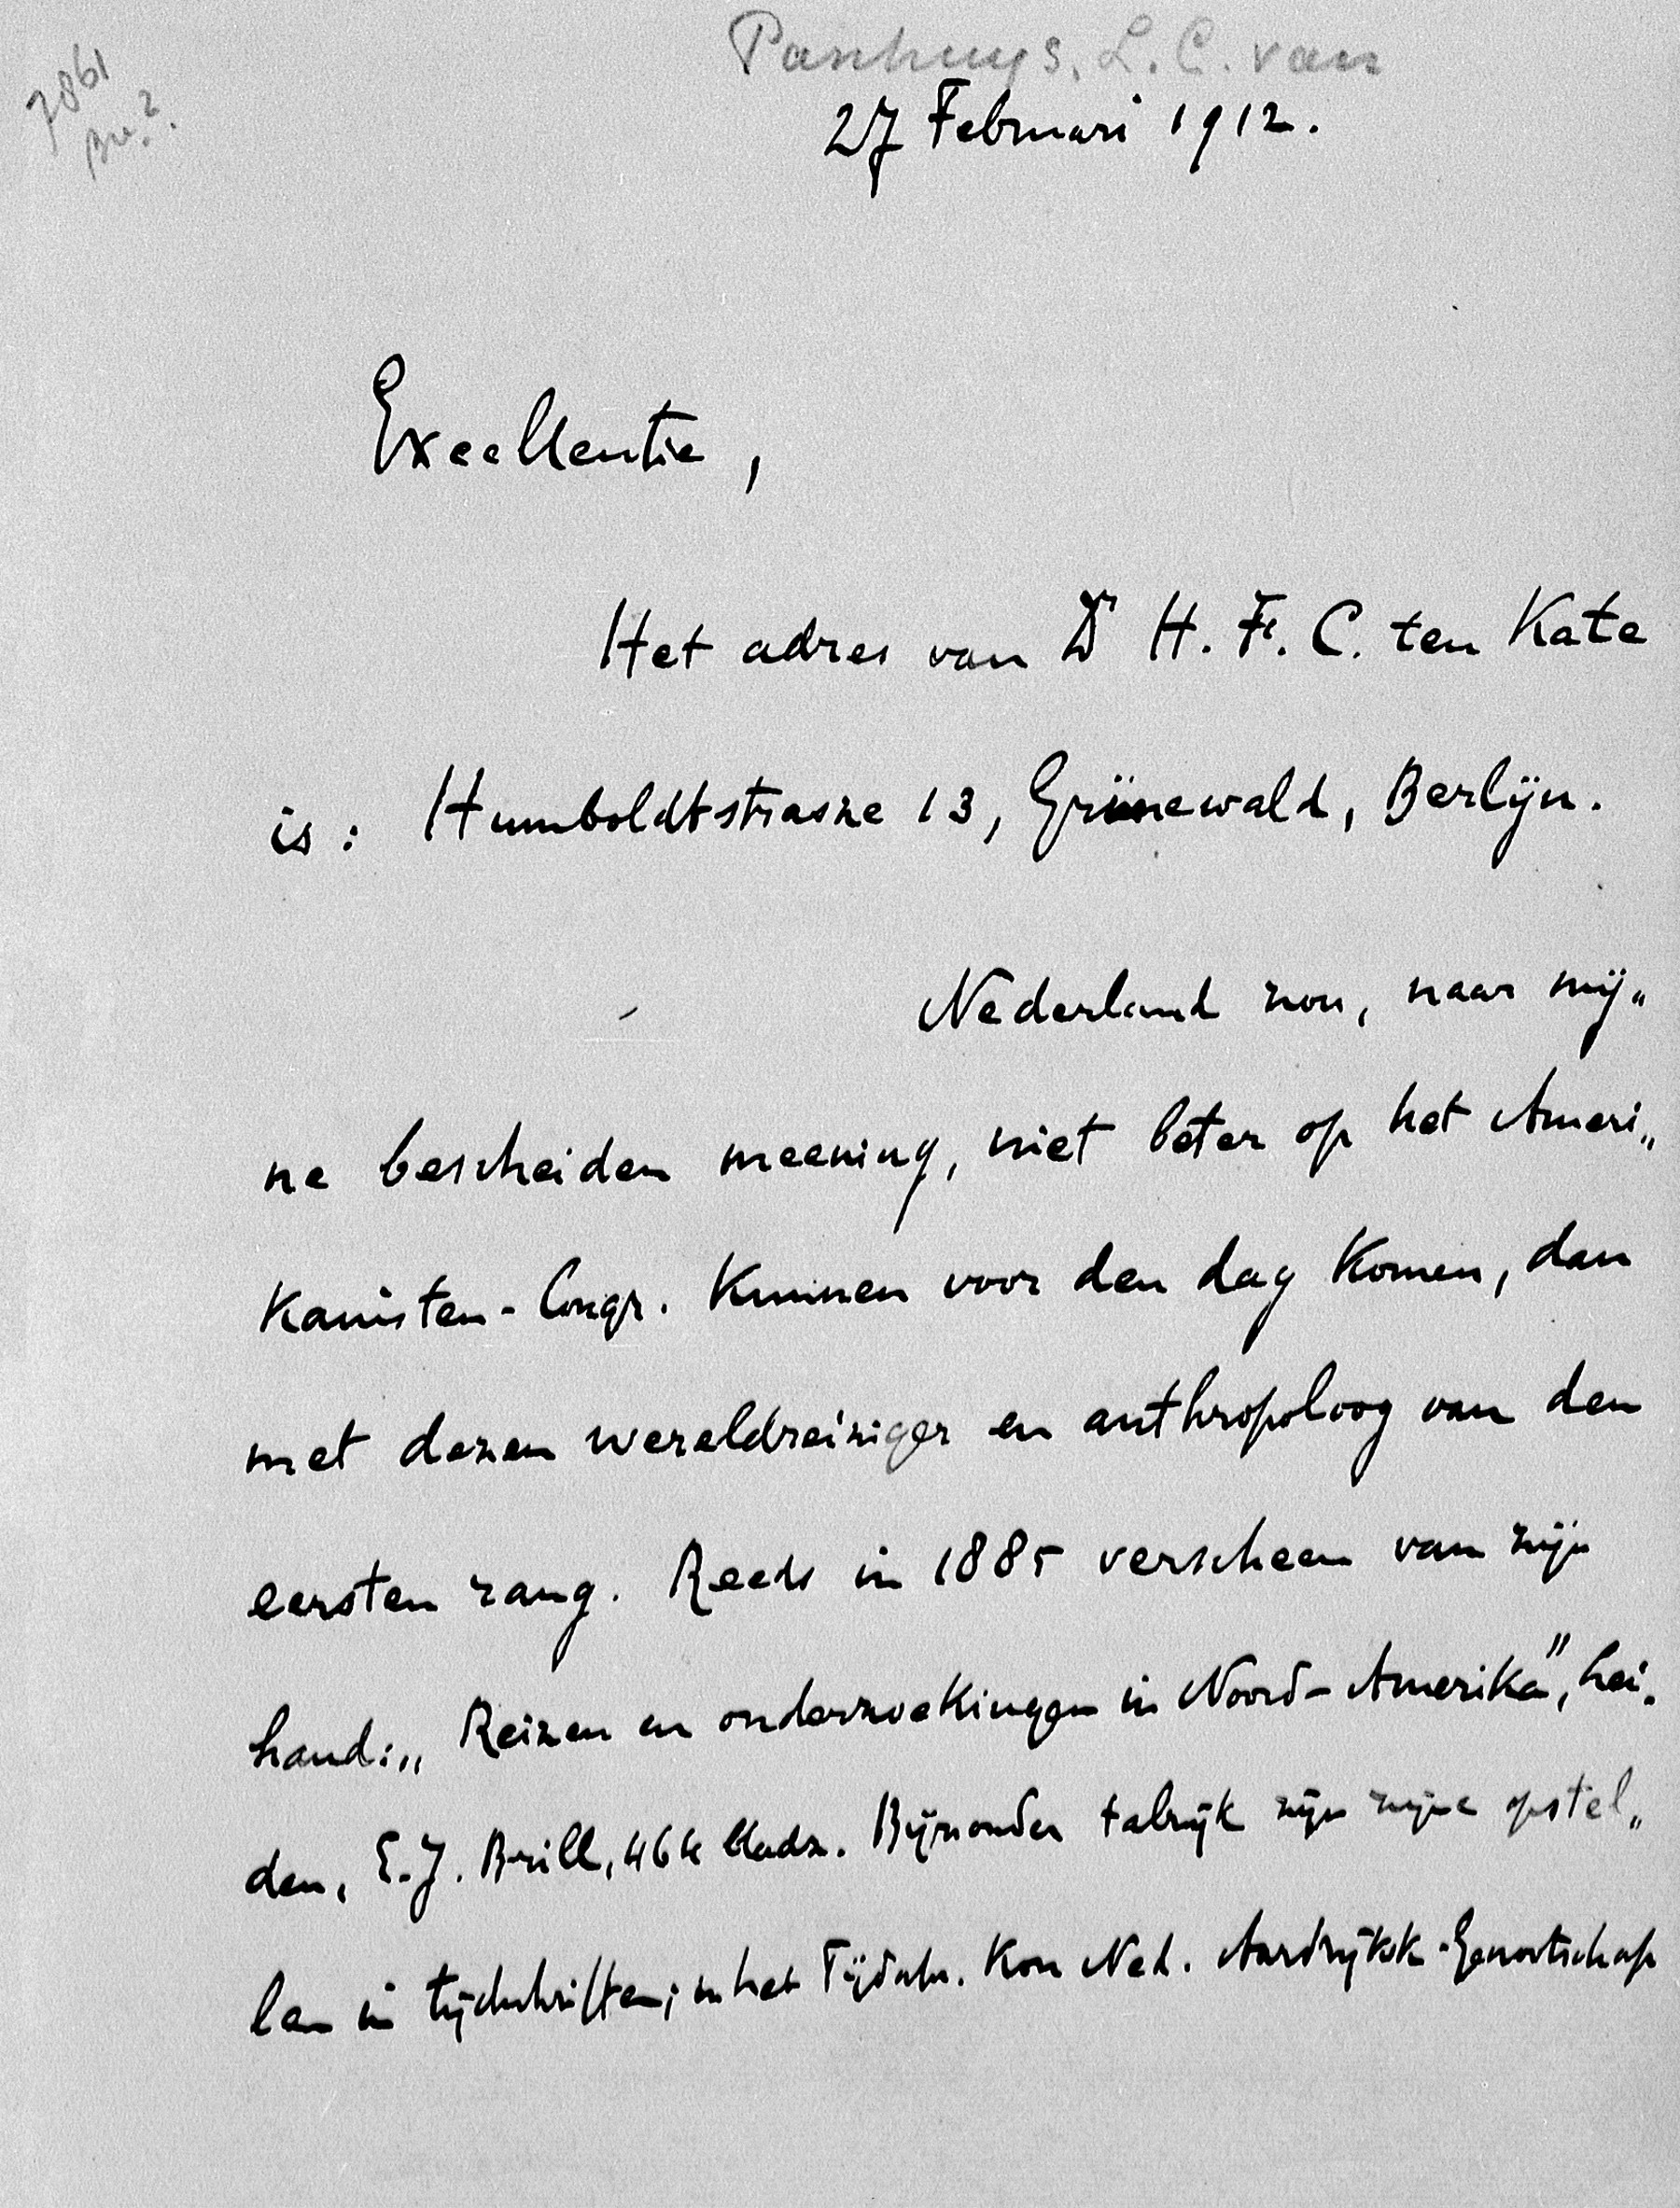 Panhuys, L. C. van
7861
27 Februari 1912.
Excellentie,
Het adres van Dr H. F. C. ten Kate
is: Humboldtstrasze 13, Grünewald, Berlijn.
Nederland zou, naar mij„
ne bescheiden meening, niet beter op het Ameri„
kanisten-Congr. kunnen voor den dag komen, dan
met dezen wereldreiziger en anthropoloog van den
eersten rang. Reeds in 1885 verscheen van zijn
hand: „Reizen en onderzoekingen in Noord-Amerika", Lei„
den, E. J. Brill, 464 bladz. Bijzonder talrijk zijn zijne opstel„
len in tijdschriften; in het Tijdschr. Kon Ned. Aardrijksk. Genootschap